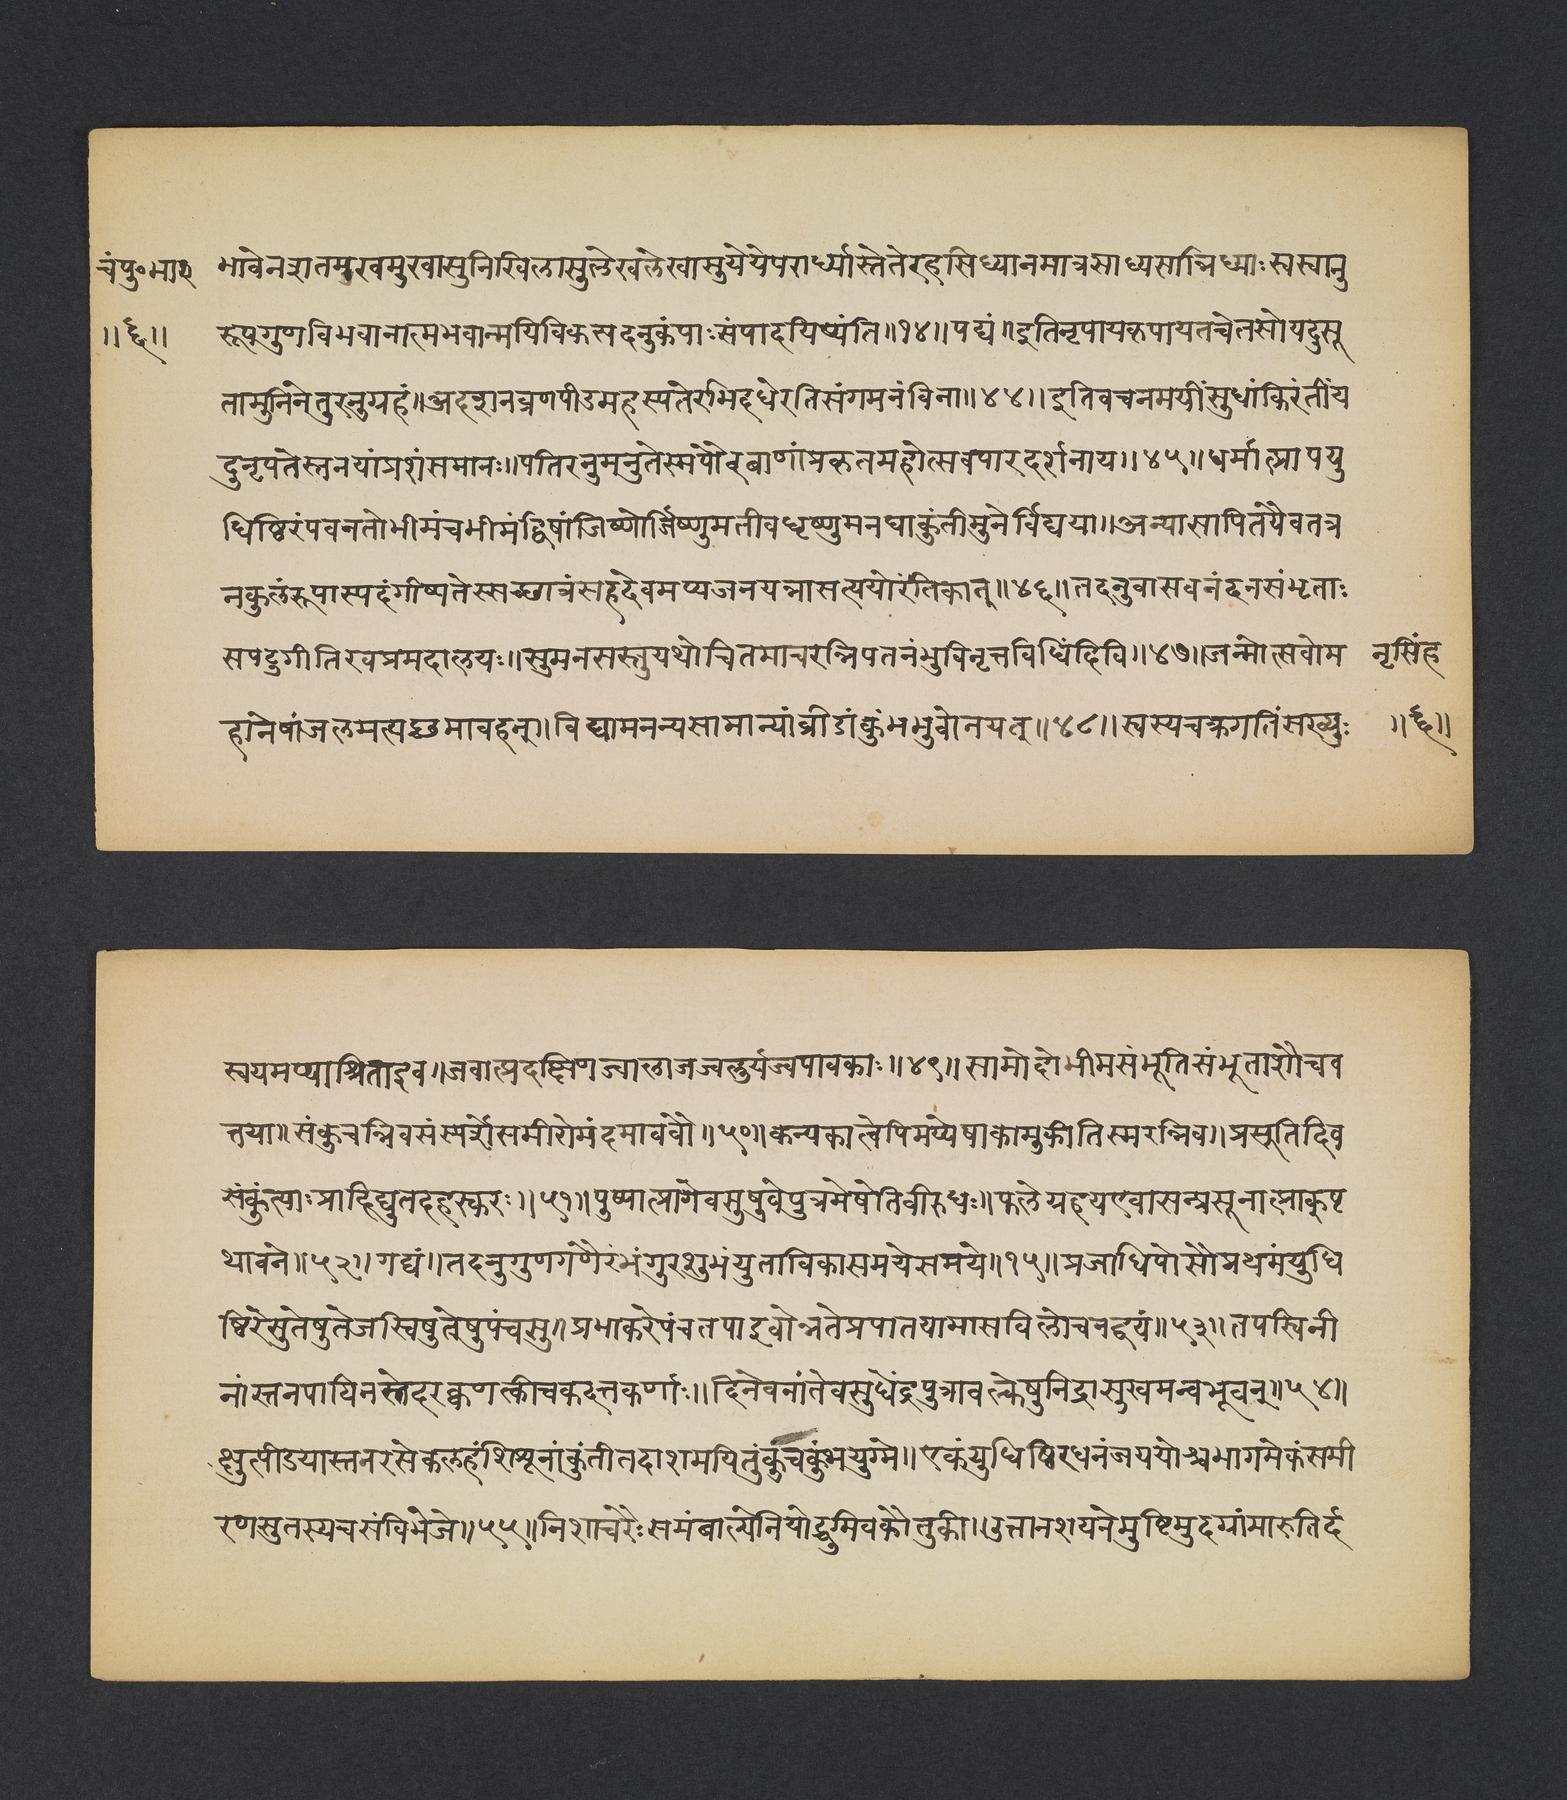 चंपु॰भार
॥६॥
भावेनशतमुखमुखासुनिखिलासुलेखलेखासुयेयेपरार्ध्यास्तेतेरहसिध्यानमात्रसाध्यसान्निध्याःस्वस्वानु
रूपगुणविभवानात्मभवान्मयिविकसदनुकंपाःसंपादयिष्यंति॥१४॥पद्यं॥इतिनृपायकृपायतचेतसोयदुसू
तामुनिनेतुरनुग्रहं॥अदशनव्रणपीडमहस्पतेरभिदधेरतिसंगमनंविना॥४४॥इतिवचनमयींसुधांकिरंतींय
दुनृपतेस्तनयांप्रशंसमानः॥पतिरनुमनुतेस्मपौरबाणांप्रकृतमहोत्सवपारदर्शनाय॥४५॥धर्मात्प्रापयु
धिष्ठिरंपवनतोभीमंचभीमंद्विषांजिष्णोर्जिष्णुमतीवधृष्णुमनघाकुंतीमुनेर्विद्यया॥अन्यासापितयैवतत्र
नकुलंरूपास्पदंगीष्पतेस्सच्छात्रंसहदेवमप्यजनयन्नासत्ययोरंतिकात्॥४६॥तदनुवासवनंदनसंभृताः
सपदुगीतिरवप्रमदालयः॥सुमनसस्तुयथोचितमाचरन्निपतनंभुविनृत्तविधिंदिवि॥४७॥जन्मोत्सवोम
हानेषांजलमत्यच्छमावहन्॥विद्यामनन्यसामान्यांव्रीडांकुंभभुवोनयत्॥४८॥स्वस्यचक्रगतिंसख्युः
नृसिंह
॥६॥
स्वयमप्याश्रिताइव॥जवात्प्रदक्षिणज्वालाजज्वलुर्यज्वपावकाः॥४९॥सामोहोभीमसंभूतिसंभूताशौचव
त्तया॥संकुचन्निवसंस्पर्शेसमीरोमंदमाववौ॥५०॥कन्यकात्वेपिमय्येषाकामुकीतिस्मरन्निव॥प्रसूतिदिव
संकुंत्याःप्राहिद्युतदहस्करः॥५१॥पुष्पात्प्रागेवसुषुवेपुत्रमेषेतिवीरुधः॥फलेग्रहयएवासन्प्रसूनात्प्राक्पृ
थावने॥५२॥गद्यं॥तदनुगुणगणैरभंगुरशुभंयुताविकासमयेसमये॥१५॥प्रजाधिपोसौप्रथमंयुधि
ष्ठिरेसुतेषुतेजस्विषुतेषुपंचसु॥प्रभाकरेपंचतपाइवोन्नतेप्रपातयामासविलोचनद्वयं॥५३॥तपस्विनी
नांस्तनपायिनस्तेदरक्वणत्कीचकदत्तकर्णाः॥दिनेवनांतेवसुधेंद्रपुत्रावल्केषुनिद्रासुखमन्वभूवन्॥५४॥
क्षुत्पीडयास्तनरसेकलहंशिशूनांकुंतीतदाशमयितुंकुचकुंभयुग्मे॥एकंयुधिष्ठिरधनंजययोश्चभागमेकंसमी
रणसुतस्यचसंविभेजे॥५५॥निशाचरैःसमंबाल्येनियोद्धुमिवकौतुकी॥उत्तानशयनेमुष्टिमुदग्रांमारुतिर्द